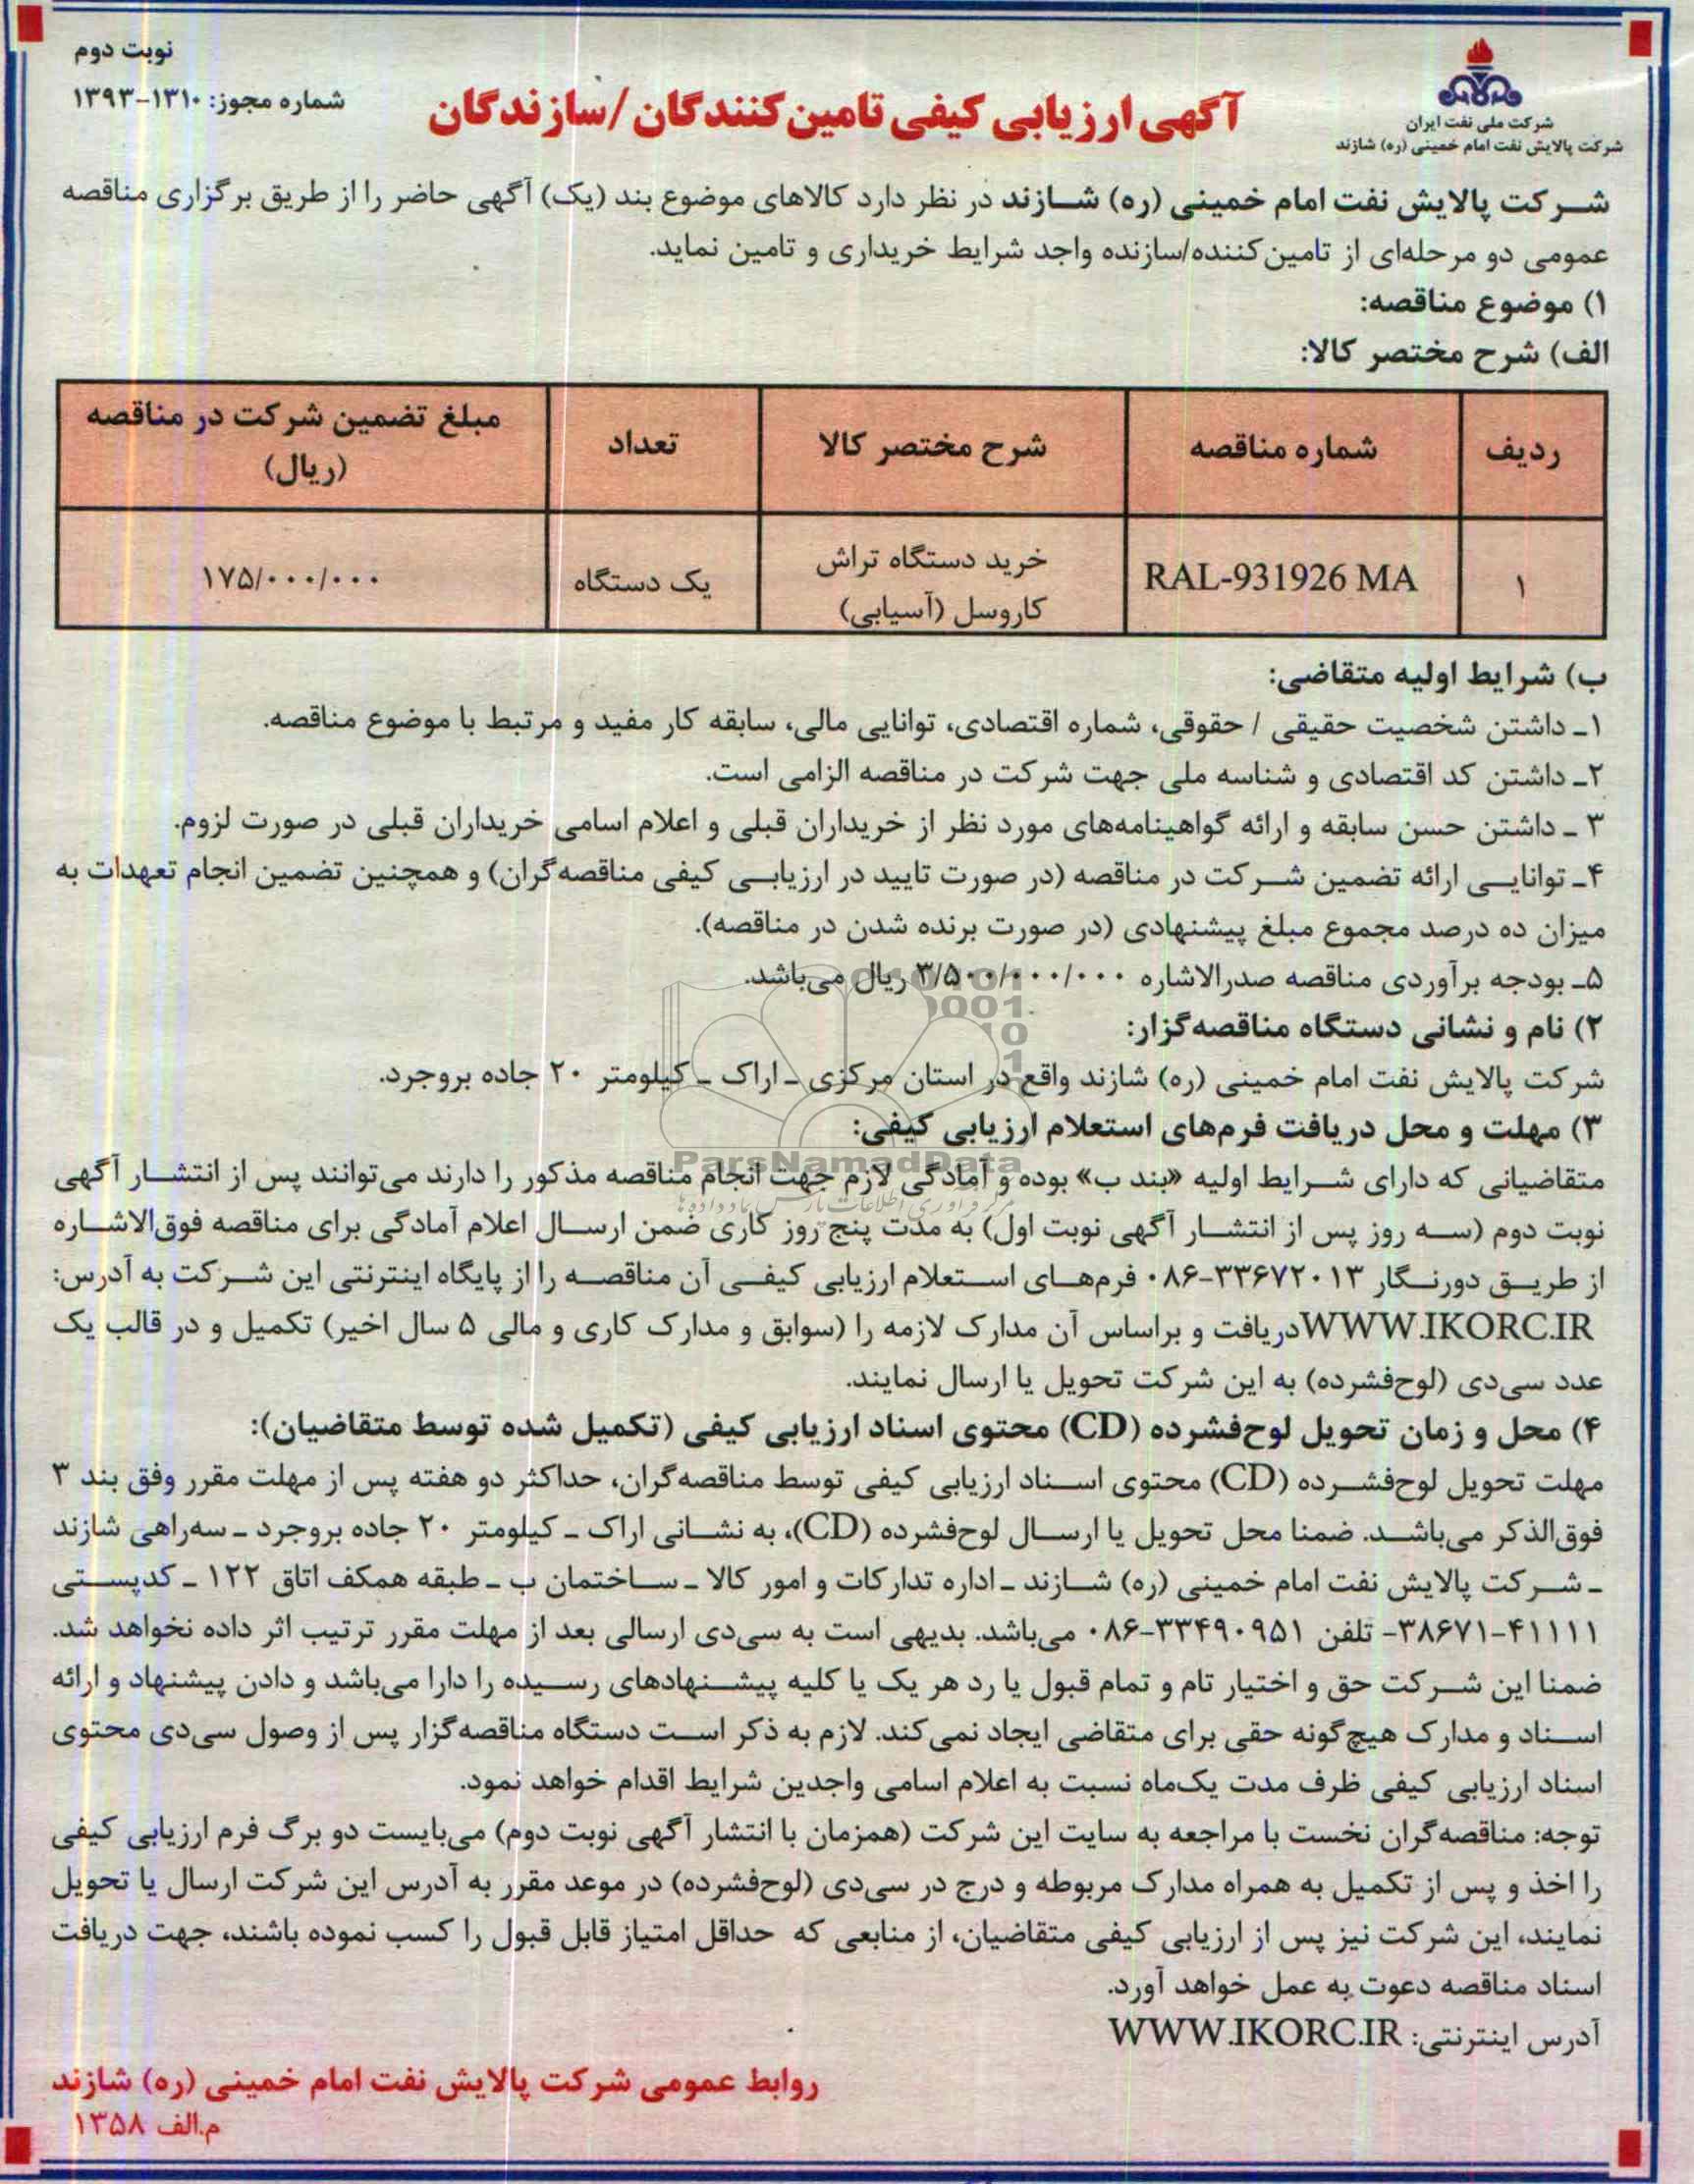 نوبت دوم
شماره مجوز: ۱۳۱۰-۱۳۹۳
شرکت ملی نفت ایران
شرکت پالایش نفت امام خمینی (ره) شازند
آگهی ارزیابی کیفی تامین‌کنندگان /سازندگان
شرکت پالایش نفت امام خمینی (ره) شازند در نظر دارد کالاهای موضوع بند (یک) آگهی حاضر را از طریق برگزاری مناقصه
عمومی دو مرحله‌ای از تامین‌کننده/سازنده واجد شرایط خریداری و تامین نماید.
۱) موضوع مناقصه:
الف) شرح مختصر کالا:
ردیف شماره مناقصه شرح مختصر کالا تعداد مبلغ تضمین شرکت در مناقصه
(ریال)
۱ RAL-931926 MA خرید دستگاه تراش
کاروسل (آسیابی) یک دستگاه ۱۷۵/۰۰۰/۰۰۰
ب) شرایط اولیه متقاضی:
۱ـ داشتن شخصیت حقیقی / حقوقی، شماره اقتصادی، توانایی مالی، سابقه کار مفید و مرتبط با موضوع مناقصه.
۲ـ داشتن کد اقتصادی و شناسه ملی جهت شرکت در مناقصه الزامی است.
۳ ـ داشتن حسن سابقه و ارائه گواهینامه‌های مورد نظر از خریداران قبلی و اعلام اسامی خریداران قبلی در صورت لزوم.
۴ـ توانایی ارائه تضمین شرکت در مناقصه (در صورت تایید در ارزیابی کیفی مناقصه‌گران) و همچنین تضمین انجام تعهدات به
میزان ده درصد مجموع مبلغ پیشنهادی (در صورت برنده شدن در مناقصه).
۵ـ بودجه برآوردی مناقصه صدرالاشاره ۳/۵۰۰/۰۰۰/۰۰۰ ریال می‌باشد.
۲) نام و نشانی دستگاه مناقصه‌گزار:
شرکت پالایش نفت امام خمینی (ره) شازند واقع در استان مرکزی ـ اراک ـ کیلومتر ۲۰ جاده بروجرد.
۳) مهلت و محل دریافت فرم‌های استعلام ارزیابی کیفی:
ParsNamadData
متقاضیانی که دارای شرایط اولیه «بند ب» بوده و آمادگی لازم جهت انجام مناقصه مذکور را دارند می‌توانند پس از انتشار آگهی
نوبت دوم (سه روز پس از انتشار آگهی نوبت اول) به مدت پنج روز کاری ضمن ارسال اعلام آمادگی برای مناقصه فوق‌الاشاره
از طریق دورنگار ۳۳۶۷۲۰۱۳-۰۸۶ فرم‌های استعلام ارزیابی کیفی آن مناقصه را از پایگاه اینترنتی این شرکت به آدرس:
WWW.IKORC.IR دریافت و براساس آن مدارک لازمه را (سوابق و مدارک کاری و مالی ۵ سال اخیر) تکمیل و در قالب یک
عدد سی‌دی (لوح‌فشرده) به این شرکت تحویل یا ارسال نمایند.
۴) محل و زمان تحویل لوح‌فشرده (CD) محتوی اسناد ارزیابی کیفی (تکمیل شده توسط متقاضیان):
مهلت تحویل لوح‌فشرده (CD) محتوی اسناد ارزیابی کیفی توسط مناقصه‌گران، حداکثر دو هفته پس از مهلت مقرر وفق بند ۳
فوق‌الذکر می‌باشد. ضمنا محل تحویل یا ارسال لوح‌فشرده (CD)، به نشانی اراک ـ کیلومتر ۲۰ جاده بروجرد ـ سه‌راهی شازند
ـ شرکت پالایش نفت امام خمینی (ره) شازند ـ اداره تدارکات و امور کالا ـ ساختمان ب ـ طبقه همکف اتاق ۱۲۲ ـ کدپستی
۴۱۱۱۱-۳۸۶۷۱- تلفن ۳۳۴۹۰۹۵۱-۰۸۶ می‌باشد. بدیهی است به سی‌دی ارسالی بعد از مهلت مقرر ترتیب اثر داده نخواهد شد.
ضمنا این شرکت حق و اختیار تام و تمام قبول یا رد هر یک یا کلیه پیشنهادهای رسیده را دارا می‌باشد و دادن پیشنهاد و ارائه
اسناد و مدارک هیچ‌گونه حقی برای متقاضی ایجاد نمی‌کند. لازم به ذکر است دستگاه مناقصه‌گزار پس از وصول سی‌دی محتوی
اسناد ارزیابی کیفی ظرف مدت یک‌ماه نسبت به اعلام اسامی واجدین شرایط اقدام خواهد نمود.
توجه: مناقصه‌گران نخست با مراجعه به سایت این شرکت (همزمان با انتشار آگهی نوبت دوم) می‌بایست دو برگ فرم ارزیابی کیفی
را اخذ و پس از تکمیل به همراه مدارک مربوطه و درج در سی‌دی (لوح‌فشرده) در موعد مقرر به آدرس این شرکت ارسال یا تحویل
نمایند، این شرکت نیز پس از ارزیابی کیفی متقاضیان، از منابعی که حداقل امتیاز قابل قبول را کسب نموده باشند، جهت دریافت
اسناد مناقصه دعوت به عمل خواهد آورد.
آدرس اینترنتی: WWW.IKORC.IR
روابط عمومی شرکت پالایش نفت امام خمینی (ره) شازند
م.الف ۱۳۵۸